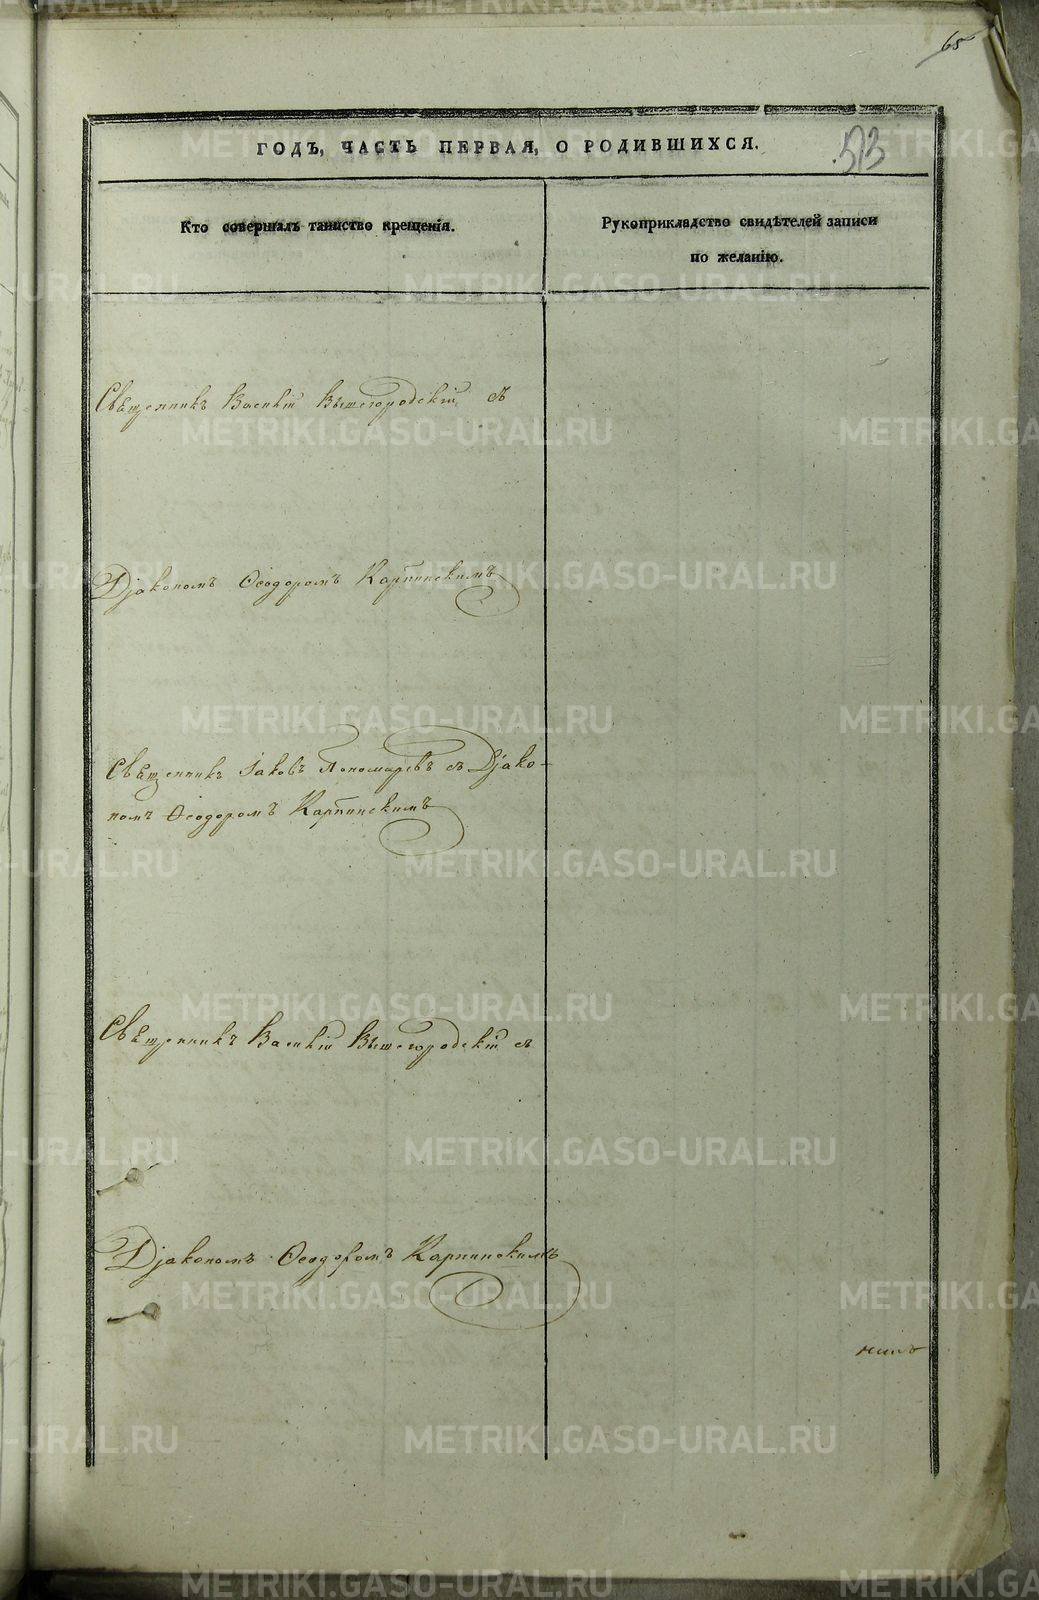 65
ГОДЪ, ЧАСТЬ ПЕРВАЯ, О РОДИВШИХСЯ.
513
Кто совершалъ таинство крещенія.
Рукоприкладство свидѣтелей записи
по желанію.
Священникъ Василій Вышегородскій съ
Діакономъ Ѳеодоромъ Карпинскимъ
Священникъ Іаковъ Пономаревъ съ Діако-
номъ Ѳеодоромъ Карпинскимъ
Священникъ Василій Вышегородскій съ
Діакономъ Ѳеодоромъ Карпинскимъ
METRIKI.GASO-URAL.RU